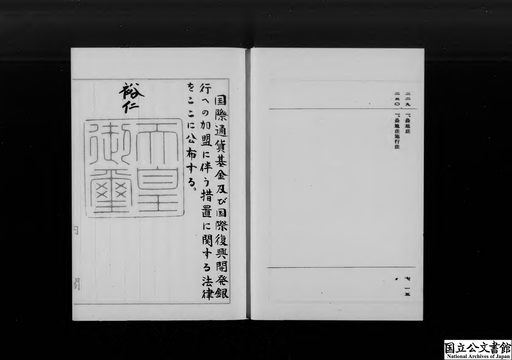 二二九 農地法
二三〇 農地法施行法
国際通貨基金及び国際復興開発銀
行への加盟に伴う措置に関する法律
をここに公布する。
裕仁
天皇
御璽
国立公文書館
National Archives of Japan